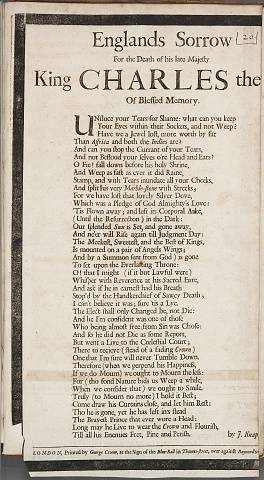 20
Englands Sorrow
For the Death of his late Majesty
King CHARLES the
Of Blessed Memory.
UNsluce your Tears for Shame: what can you keep
Your Eyes within their Sockets, and not Weep?
Have we a Jewel lost, more worth by far
Than Africa and both the Indies are?
And can you stop the Currant of your Tears,
And not Bestood your selves o're Head and Ears?
O Fie! fall down before his holy Shrine,
And Weep as fast as ever it did Raine,
Stamp, and with Tears inundate all your Cheeks,
And split his very Marble-stone with Streeks;
For we have lost that lovely Silver Dove,
Which was a Pledge of God Almighty's Love:
'Tis flown away; and left its Corporal Aske,
(Until the Resurrection) in the Dark:
Our splended Sun is Set, and gone away,
And ne'er will Rise again till Judgment Day:
The Meekest, Sweetest, and the Best of Kings,
Is mounted on a pair of Angels Wings;
And by a Summon sent from God) is gone
To set upon the Everlasting Throne:
O! that I might (if it but Lawful were)
Whisper with Reverence at his Sacred Eare,
And ask if he in earnest had his Breath
Stop'd by the Handkerchief of Sawcy Death;
I can't believe it was; sure 'tis a Lye.
The Elect shall only Changed be, not Die:
And he I'm confident was one of those
Who being almost free from Sin was Chose:
And so he did not Die as some Report,
But went a Live to the Coelestial Court;
There to recieve (stead of a fading Crown)
One that I'm sure will never Tumble Down.
Therefore (when we perpend his Happiness,
If we do Mourn) we ought to Mourn the less:
For (tho fond Nature bids us Weep a while,
When we consider that) we ought to Smile.
Truly (to Mourn no more) I hold it Best;
Come draw his Curtains close, and let him Rest:
Tho he is gone, yet he has left in's stead
The Bravest Prince that ever wore a Head:
Long may he Live to wear the Crown and Flourish,
Till all his Enemies Fret, Pine and Perish.
by J.
LONDON, Printed by George Croom, at the Sign of the Blue-Ball in Thames-street, over against